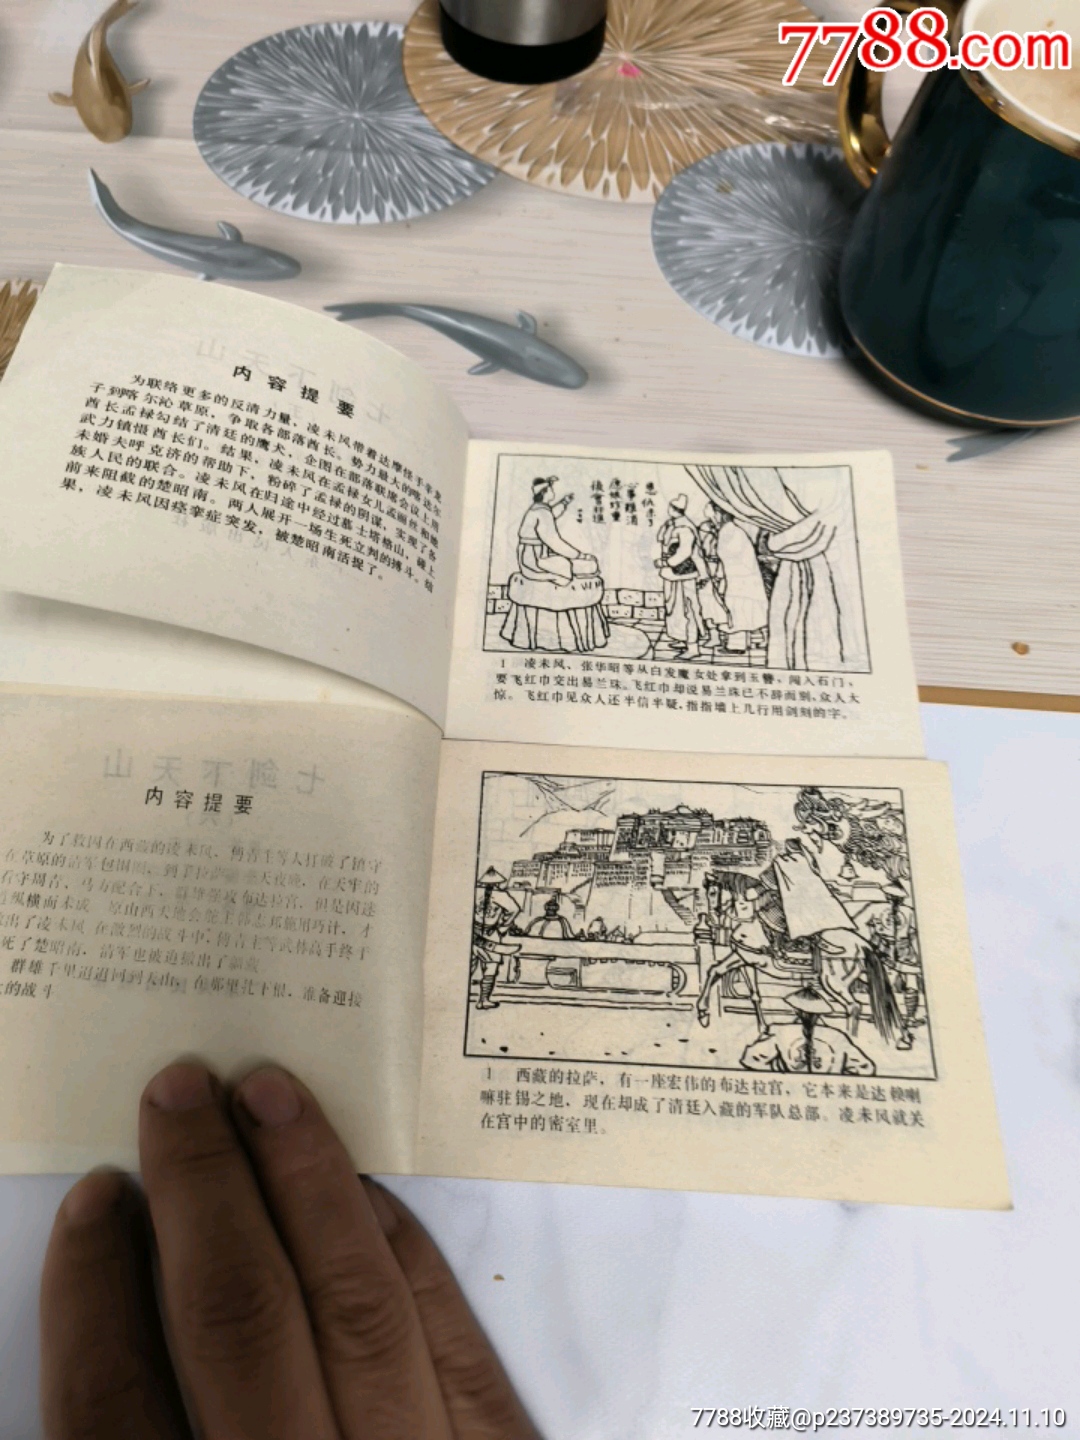 7788.com
内容提要
为联络更多的反清力量，凌未风带着达摩终于辛龙
子到喀尔沁草原，争取各部落酋长。势力最大的喀达尔
酋长孟禄勾结了清廷的鹰犬，企图在部落联席会议上用
武力镇慑酋长们。结果，凌未风在孟禄女儿孟丽丝和她
未婚夫呼克济的帮助下，粉碎了孟禄的阴谋，实现了各
族人民的联合。凌未风在归途中经过慕士塔格山，碰上
前来阻截的楚昭南。两人展开一场生死立判的搏斗。结
果，凌未风因痉挛症突发，被楚昭南活捉了。
恩仇未了
心事难消
愿妹珍重
后会非遥
1 凌未风、张华昭等从白发魔女处拿到玉簪，闯入石门，
要飞红巾交出易兰珠。飞红巾却说易兰珠已不辞而别，众人大
惊。飞红巾见众人还半信半疑，指指墙上几行用剑刻的字。
七剑下天山
内容提要
为了救囚在西藏的凌未风，傅青主等人打破了镇守
在草原的清军包围圈，到了拉萨 天夜晚，在天牢的
石守周青、马方配合下，群雄强攻布达拉宫，但是因迷
道纵横而未成 原山西天地会舵主郭志邦施用巧计，才
出了凌未风 在激烈的战斗中，傅青主等武林高手终于
死了楚昭南，清军也被迫撤出了
群雄千里迢迢回到天山，在那里扎下根，准备迎接
的战斗
1 西藏的拉萨，有一座宏伟的布达拉宫，它本来是达赖喇
嘛驻锡之地，现在却成了清廷入藏的军队总部。凌未风就关
在宫中的密室里。
7788收藏@p237389735-2024.11.10